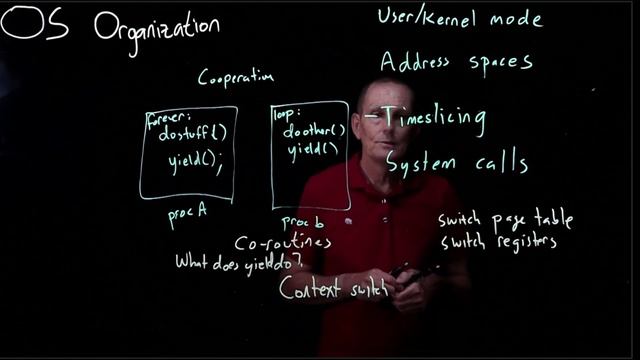 OS Organization
User/Kernel mode
Address spaces
-Timeslicing
System calls
Cooperation
forever:
dostuff()
yield();
procA
loop:
doother()
yield()
proc b
Co-routines
What does yield do?
Context switch
switch page table
switch registers